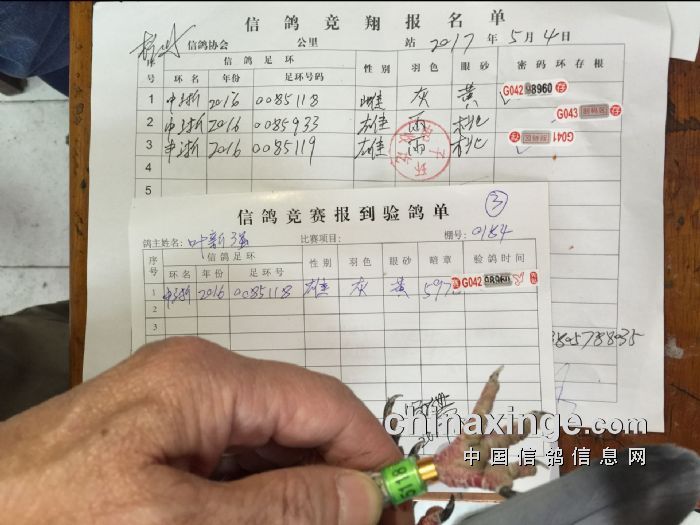 信鸽竞翔报名单
信鸽协会 公里 站 2017年5月4日
序号 信鸽足环 性别 羽色 眼砂 密码环存根
环名 年份 足环号码
1 中浙 2016 0085118 雄 灰 黄 G042 08960 存
2 中浙 2016 0085933 雄 雨 桃 G043 密码区 存
3 中浙 2016 0085119 雄 雨 桃 G041
4
5
信鸽竞赛报到验鸽单 ③
鸽主姓名: 叶新强 比赛项目: 棚号: 0184
序号 信鸽足环 性别 羽色 眼砂 暗章 验鸽时间
环名 年份 足环号
1 中浙 2016 0085118 雄 灰 黄 G042 08960
2
3
5118
chinaxinge.com
中国信鸽信息网